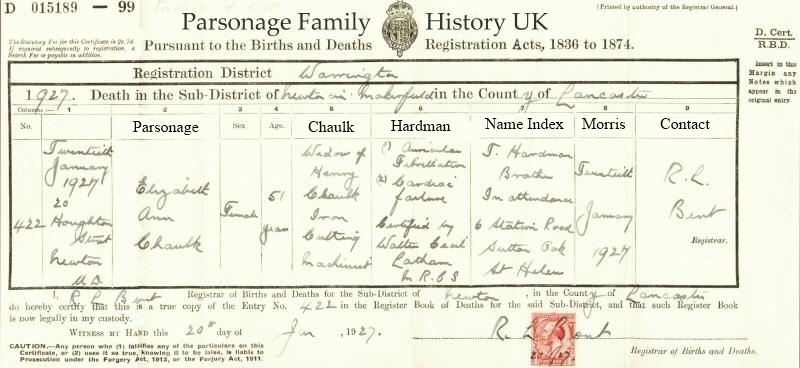 D 015189 — 99
[Printed by authority of the Registrar General.]
Parsonage Family History UK
The Statutory Fee for this Certificate is 2s. 7d.
If required subsequently to registration, a
Search Fee is payable in addition.
Pursuant to the Births and Deaths Registration Acts, 1836 to 1874.
D. Cert.
R.B.D.
Registration District Warrington
Insert in this
Margin any
Notes which
appear in the
original entry.
1927. Death in the Sub-District of Newton in Makerfield in the County of Lancaster
Columns:— 1 2 3 4 5 6 7 8 9
No. Parsonage Sex Age. Chaulk Hardman Name Index Morris Contact
422
Twentieth
January
1927
20
Houghton
Street
Newton
U.D.
Elizabeth
Ann
Chaulk
Female
51
years
Widow of
Henry
Chaulk
Iron
Cutting
Machinist
(1) Auricular
Fibrillation
(2) Cardiac
failure
Certified by
Walter Cecil
Latham
M.R.C.S
T. Hardman
Brother
In attendance
6 Station Road
Sutton Oak
St Helens
Twentieth
January
1927
R. L.
Bent
Registrar.
I, R L Bent Registrar of Births and Deaths for the Sub-District of Newton, in the County of Lancaster
do hereby certify that this is a true copy of the Entry No. 422 in the Register Book of Deaths for the said Sub-District, and that such Register Book
is now legally in my custody.
WITNESS MY HAND this 20th day of Jan, 1927.
R. L. Bent
CAUTION.—Any person who (1) falsifies any of the particulars on this
Certificate, or (2) uses it as true, knowing it to be false, is liable to
Prosecution under the Forgery Act, 1913, or the Perjury Act, 1911.
Registrar of Births and Deaths.